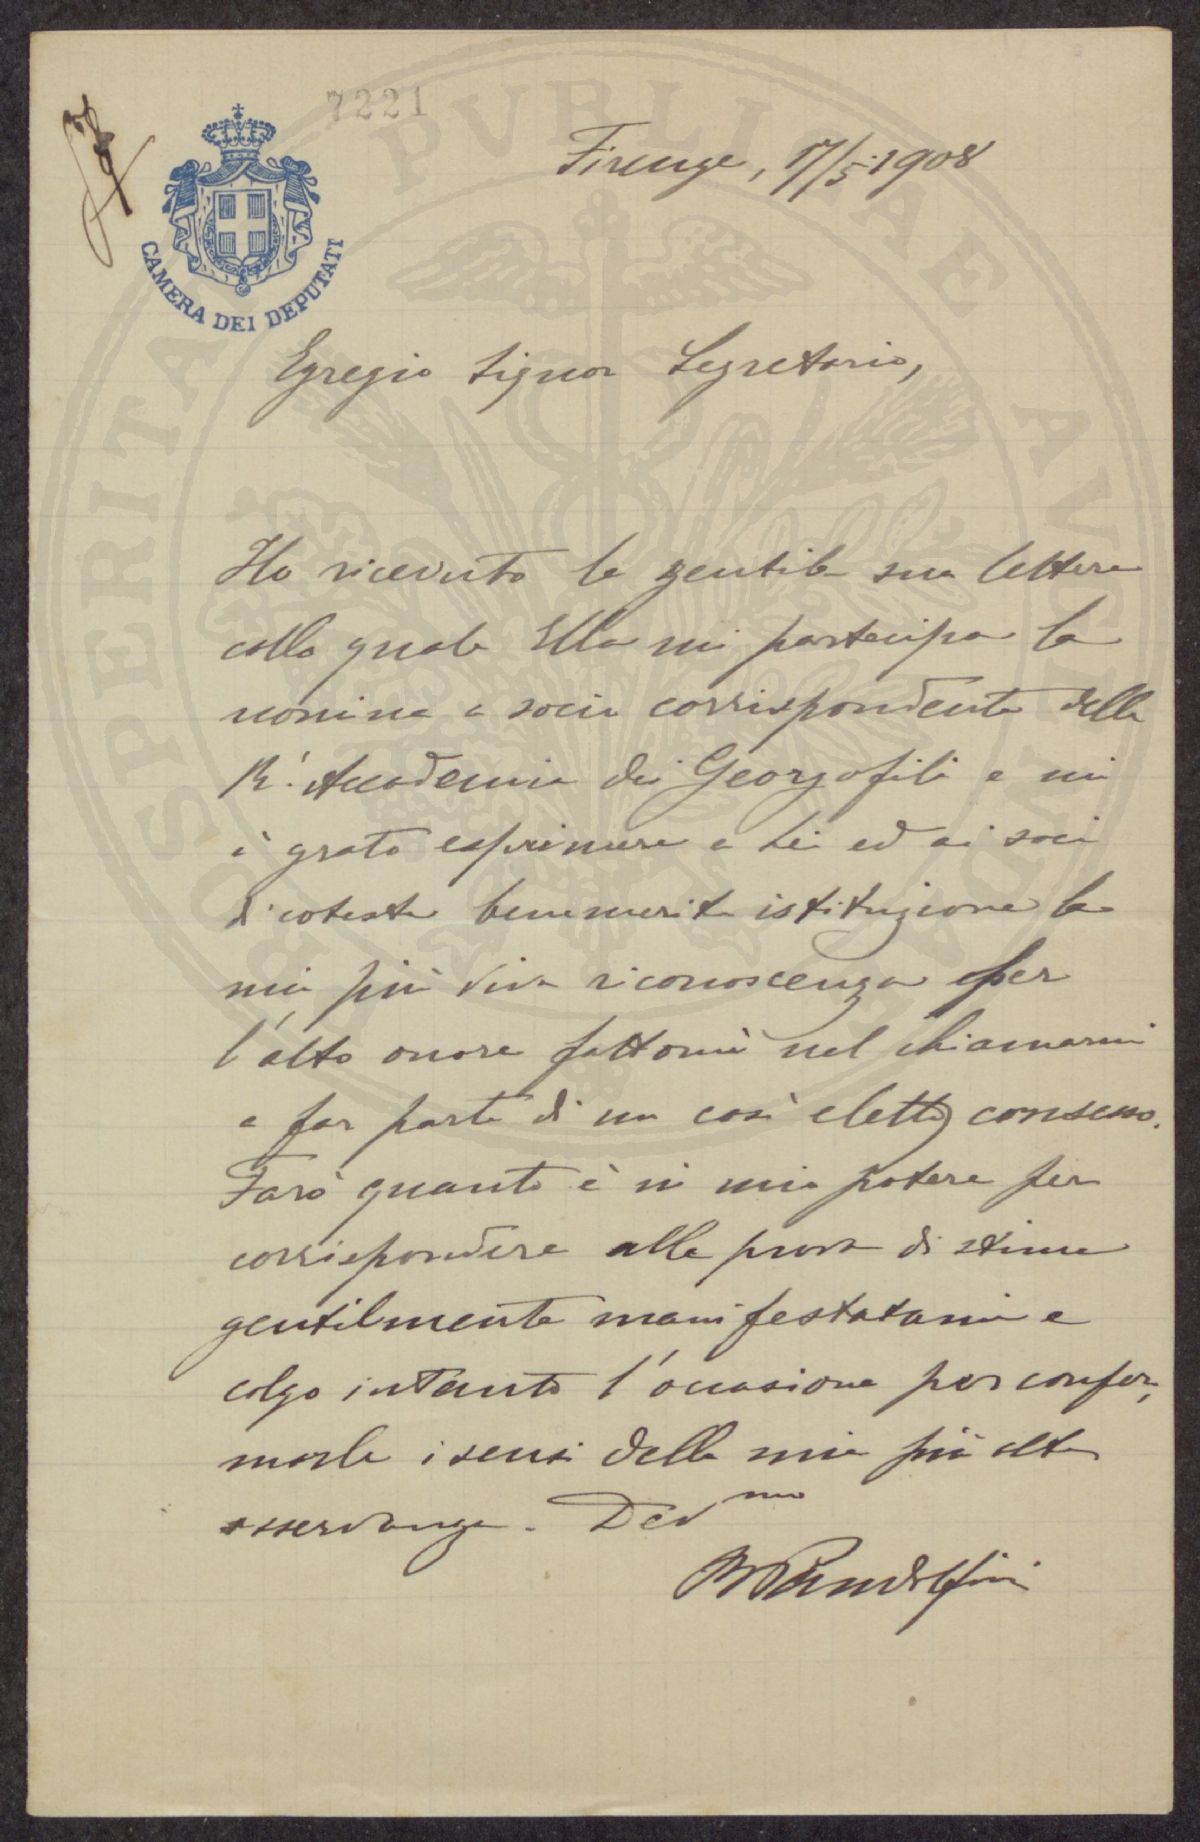 7221
CAMERA DEI DEPUTATI
Firenze, 17/5-1908
Egregio Signor Segretario,
Ho ricevuto la gentile sua lettera
colla quale Ella mi partecipa la
nomina a socio corrispondente della
R. Accademia dei Georgofili e mi
è grato esprimere a Lei ed ai soci
di cotesta benemerita istituzione la
mia più viva riconoscenza per
l'alto onore fattomi nel chiamarmi
a far parte di un così eletto consesso.
Farò quanto è in mio potere per
corrispondere alla prova di stima
gentilmente manifestatami e
colgo intanto l'occasione per confer,
marle i sensi della mia più alta
osservanza. Devmo
Pandolfini
PROSPERITATI PVBLICAE AVGENDAE